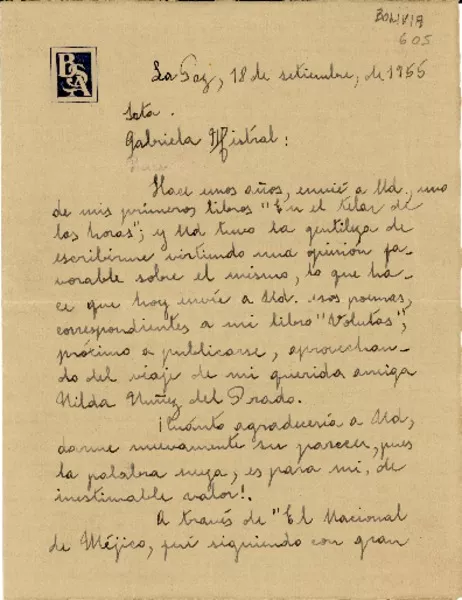 BOLIVIA
605
BSA
La Paz, 18 de setiembre, de 1955
Srta.
Gabriela Mistral:
Hace unos años, envié a Ud., uno
de mis primeros libros "En el telar de
las horas"; y Ud tuvo la gentileza de
escribirme virtiendo una opinión fa-
vorable sobre el mismo, lo que ha-
ce que hoy envíe a Ud. esos poemas,
correspondientes a mi libro "Volutas",
próximo a publicarse, aprovechan-
do del viaje de mi querida amiga
Nilda Nuñez del Prado.
¡Cuánto agradecería a Ud,
darme nuevamente su parecer, pues
la palabra suya, es para mi, de
inestimable valor!.
A través de "El Nacional
de Méjico, fuí siguiendo con gran